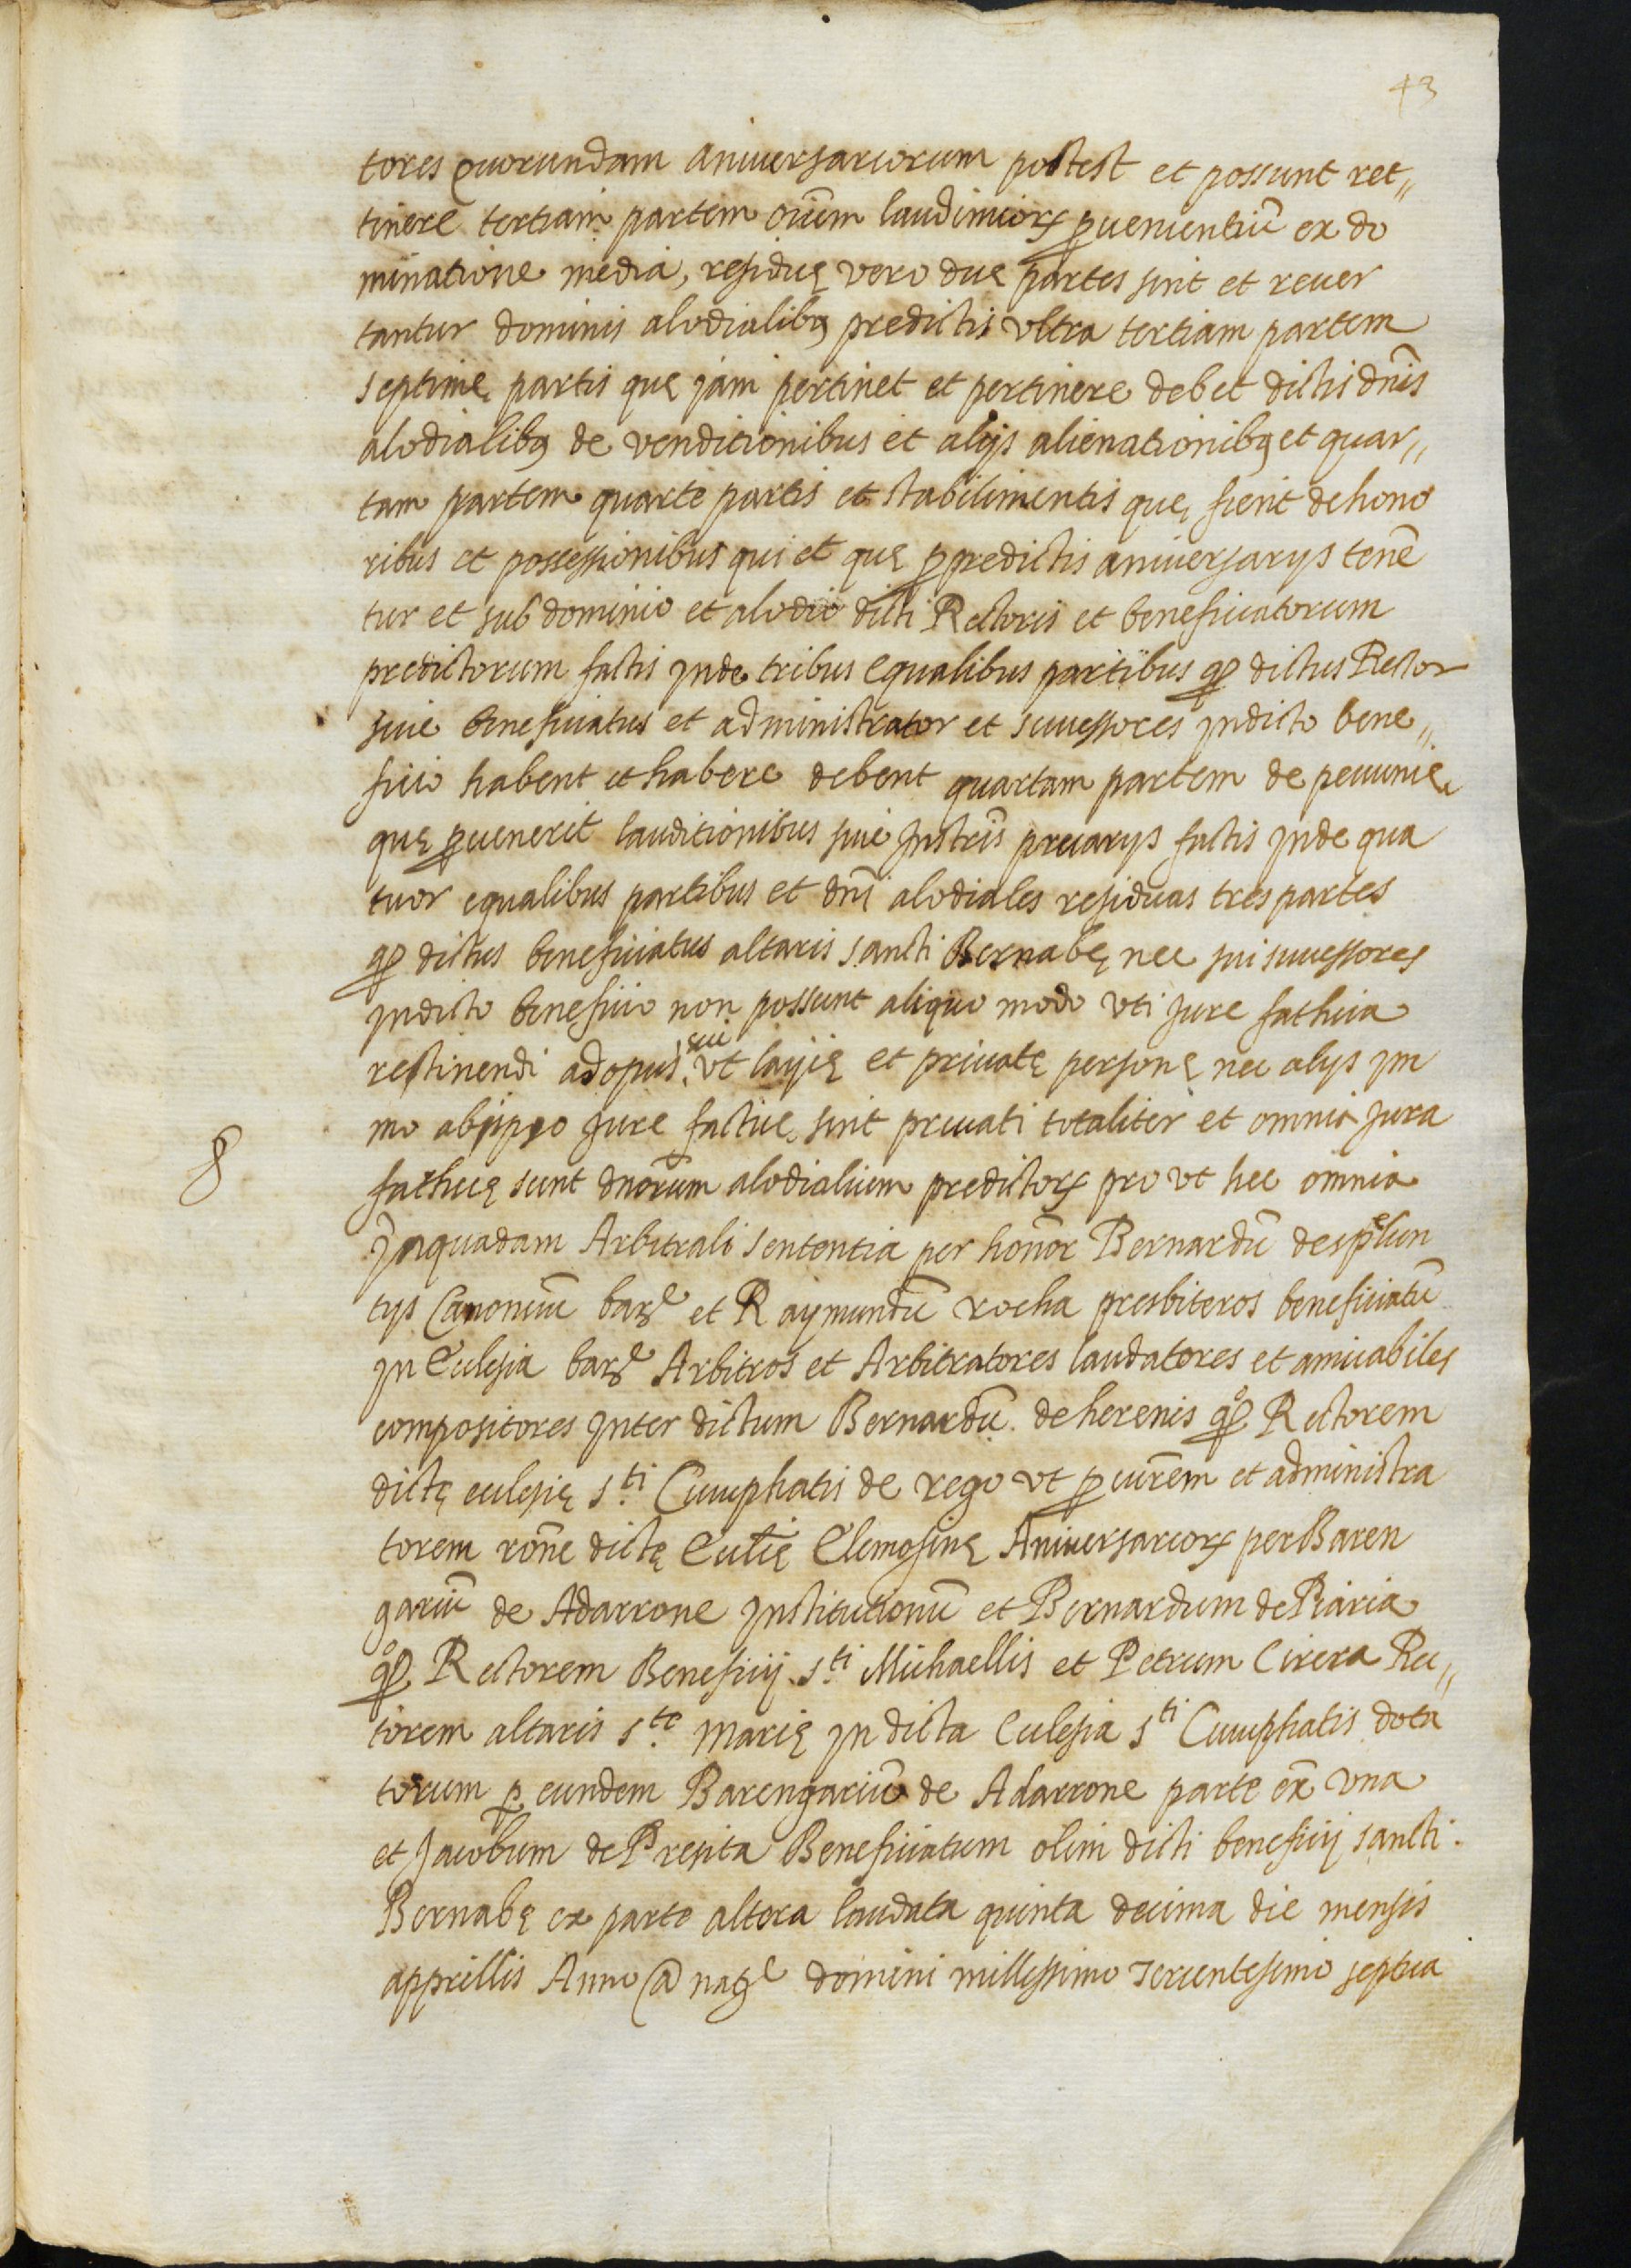 43
tores quorundam aniversariorum postest et possunt ret„
tinere tertiam partem oium laudimiorꝝ ꝓuenientiū ex do
minatione media, residuę vero duę partes sint et reuer
tantur dominis alodialibꝰ predictis vltra tertiam partem
septimę partis quę jam pertinet et pertinere debet dictis dn̄is
alodialibꝰ de venditionibus et alijs alienationibꝰ et quar„
tam partem quarte partis et stabilimentis quę fient de hono
ribus et possessionibus qui et quę ꝓ predictis aniuersarys tenē
tur et sub dominio et alodio dicti Rectoris et beneficiatorum
predictorum factis jnde tribus equalibus partibus qͫ dictus Rector
siue beneficiatus et administrator et successores jndicto bene„
ficio habent et habere debent quartam partem de pecunię
quę ꝓuenerit lauditionibus siue Jnstrīs precarys factis jnde qua
tuor equalibus partibus et dn̄i alodiales residuas tres partes
qͫ dictus beneficiatus altaris sancti Bernabę nec sui successores
jndicto beneficio non possunt aliquo modo vti jure fathica
restinendi adopus sui vt layię et priuatę personę nec alys jm
mo abipso jure facticę sint priuati totaliter et omnia jura
8
fathicę sunt dnōrum alodialium predictorꝝ pro vt hec omnia
Jnquadam Arbitrali sententia per honōr Bernardū despelun
tys Canonicū barͤ et Raymundū rocha presbiteros beneficiatū
jn Eclesia barͤ Arbitros et Arbitratores laudatores et amicabiles
compositores jnter dictum Bernardū deherenis qͦ Rectorem
dictę eclesię s.ti Cucuphatis de rego vt ꝓcurēm et administra
torem rōne dictę Eccl̄ię Elemosinę Aniuersariorꝝ per Baren
gariū de Adarrone jnstitutionū et Bernardum de Riaria
qͦ Rectorem Beneficij s.ti Michaellis et Petrum Cirera Rec„
torem altaris s.te Marię jn dicta Eclesia s.ti Cucuphatis dota
torum ꝑ eundem Barengariū de Adarrone parte ex vna
et Jacobum de Presita Beneficiatum olim dicti beneficij sancti
Bernabę ex parte altera laudata quinta decima die mensis
apprillis Anno @ natͤ domini millessimo Tercentesimo septua